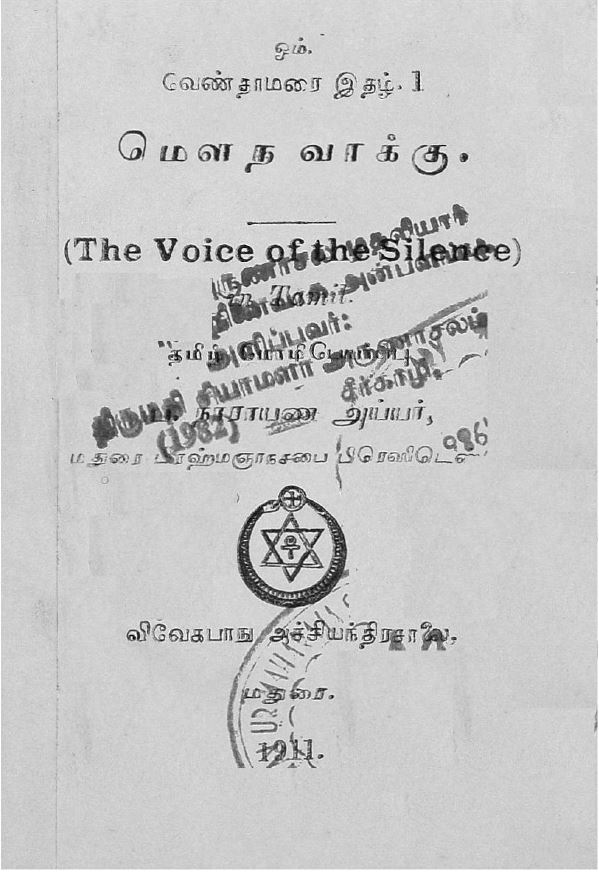 ஓம்.
வேண்தாமரை இதழ். 1
மௌந வாக்கு.
(The Voice of the Silence)
in Tamil.
அன்பளிப்பு
அனிப்பவர்:
தமிழ் மொழிபெயர்ப்பு
திருமதி சியாமளா அருணாசலம்
சீர்காழி.
(1982)
நாராயண அய்யர்,
மதுரை பிரஹ்மஞாநசபை பிரெஸிடெ
விவேகபாநு அச்சியந்திரசாலை,
மதுரை.
1911.